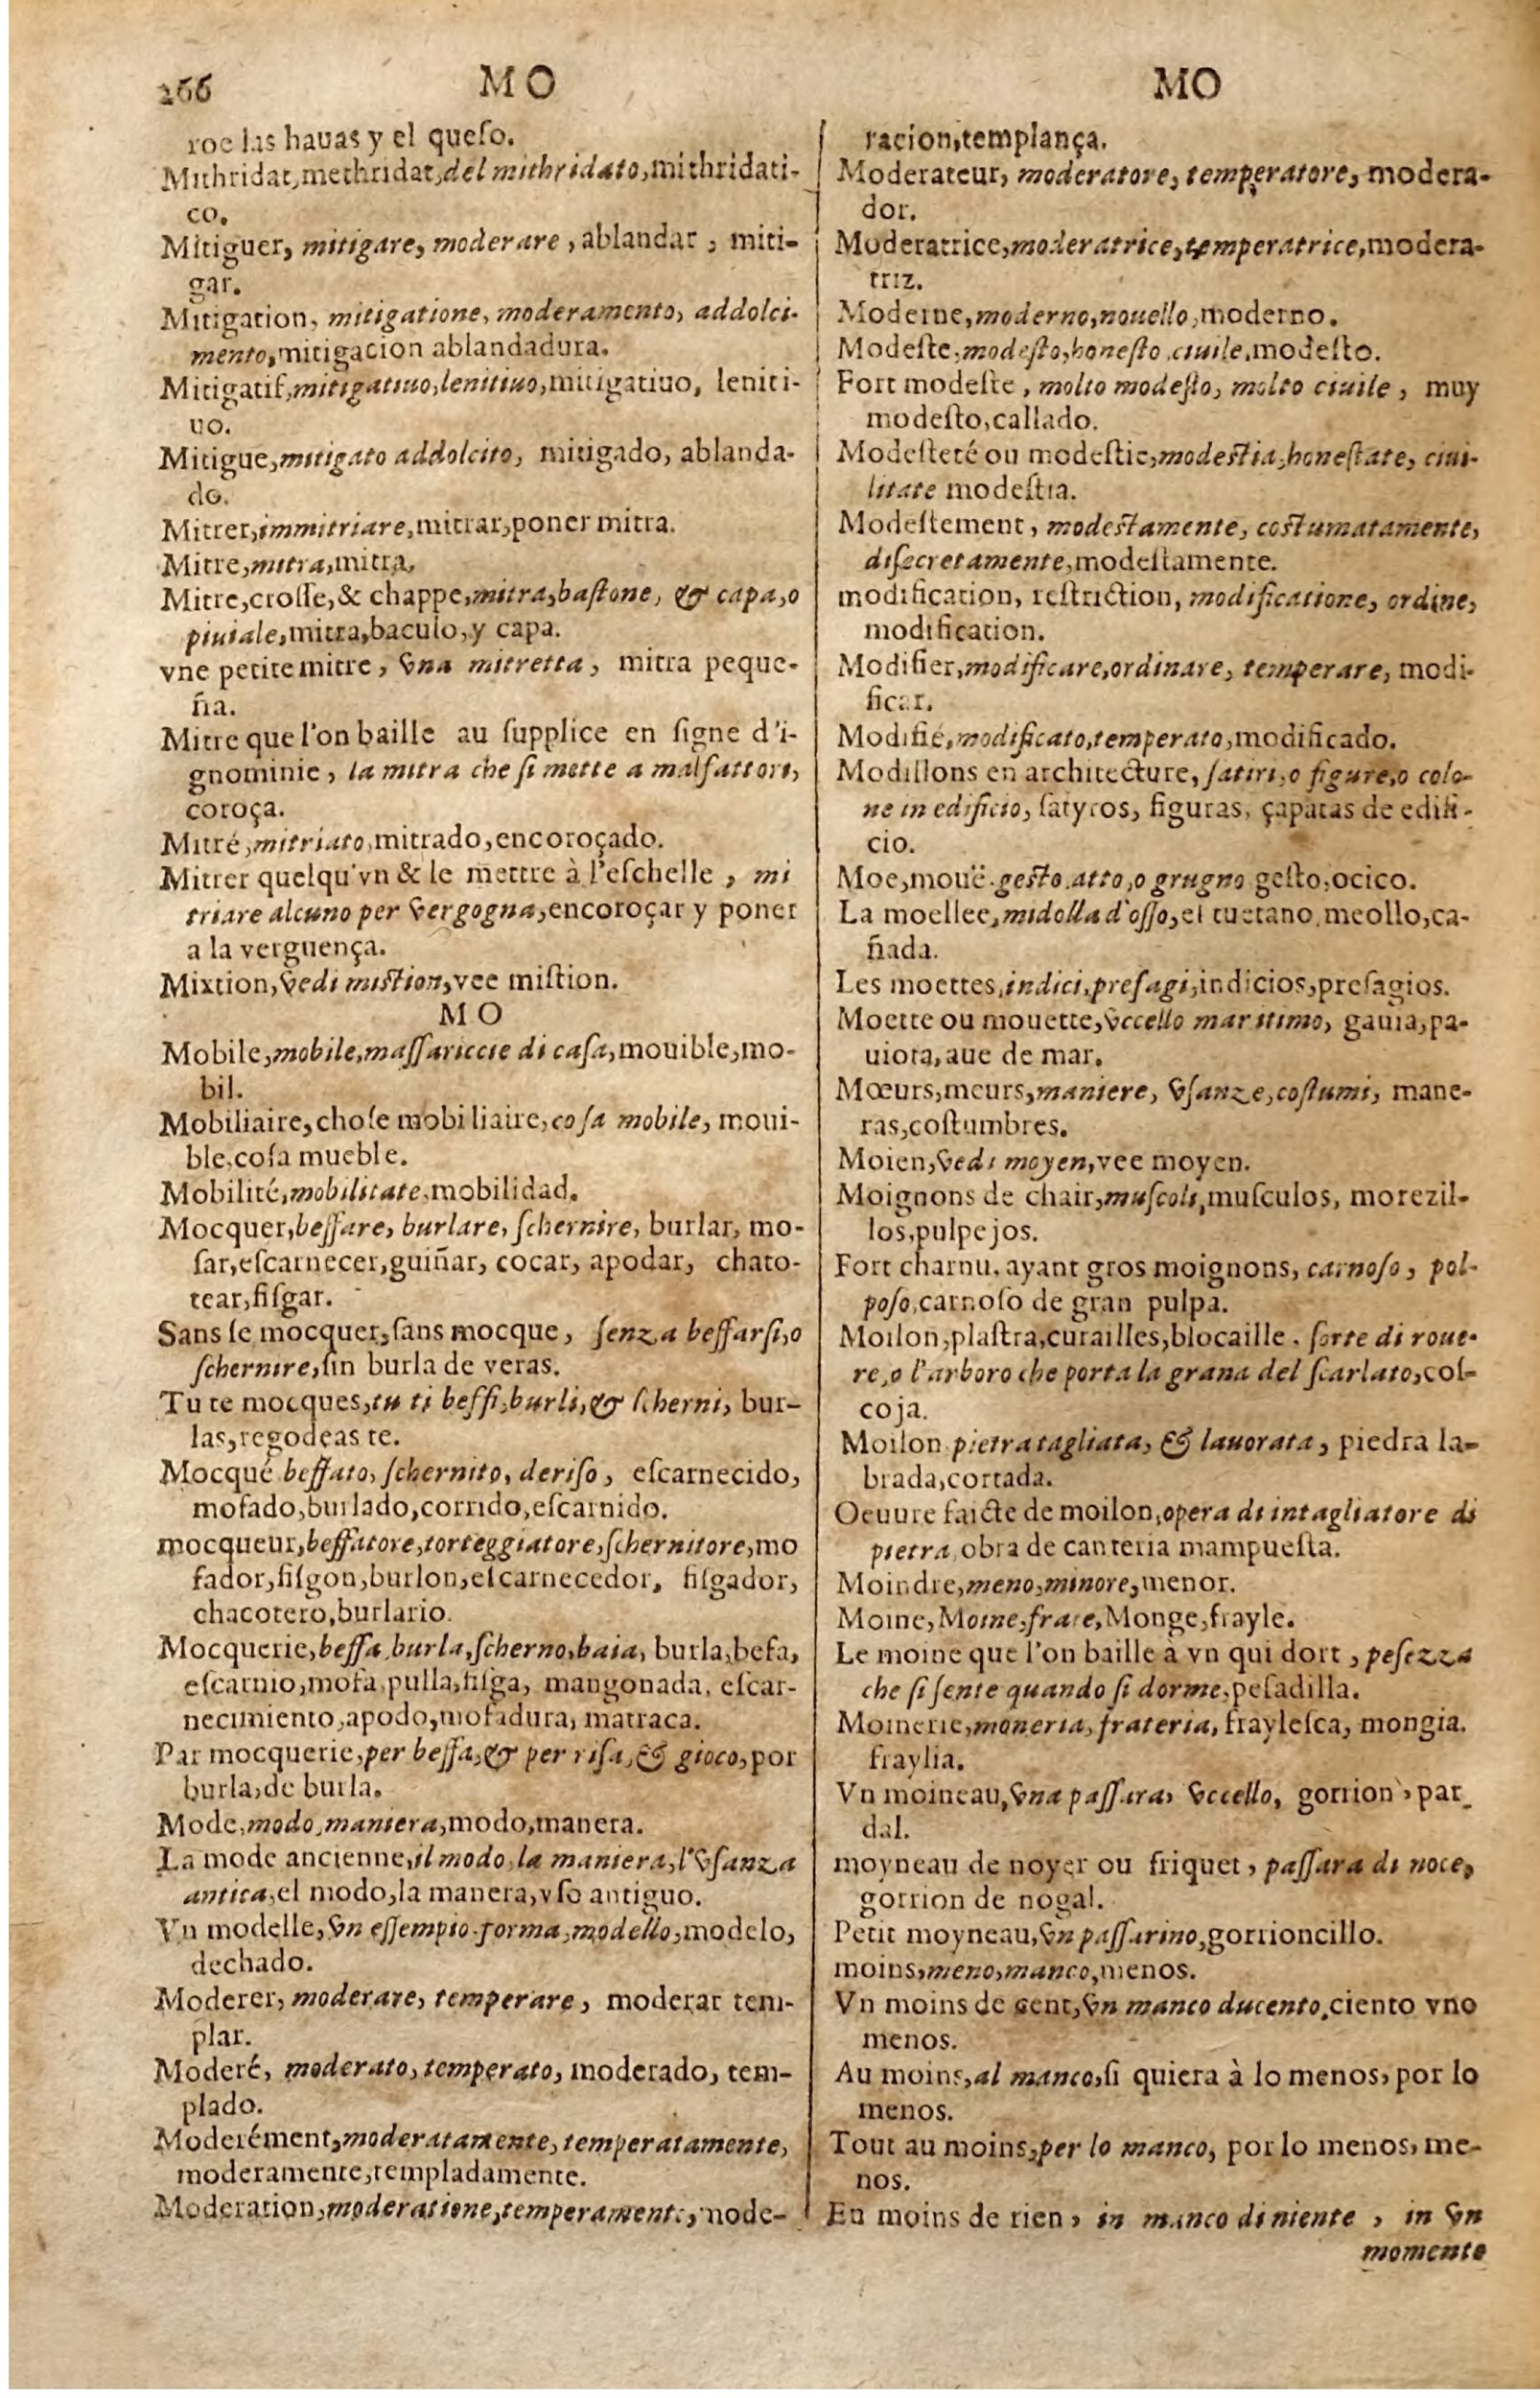 266 MO MO
roe las hauas y el queſo.
Mithridat, methridat, del mithridato, mithridati-
co.
Mitiguer, mitigare, moderare, ablandar, miti-
gar.
Mitigation, mitigatione, moderamento, addolci-
mento, mitigacion ablandadura.
Mitigatif, mitigatiuo, lenitiuo, mitigatiuo, leniti-
uo.
Mitigue, mitigato addolcito, mitigado, ablanda-
do.
Mitrer, immitriare, mitrar, poner mitra.
Mitre, mitra, mitra.
Mitre, croſſe, & chappe, mitra, baſtone, & capa, o
piuiale, mitra, baculo, y capa.
vne petite mitre, vna mitretta, mitra peque-
ña.
Mitre que l'on baille au ſupplice en ſigne d'i-
gnominie, la mitra che ſi mette a malfattori,
coroça.
Mitré, mitriato, mitrado, encoroçado.
Mitrer quelqu'vn & le mettre à l'eſchelle, mi
triare alcuno per vergogna, encoroçar y poner
a la verguença.
Mixtion, vedi miſtion, vee miſtion.
MO
Mobile, mobile, maſſariccie di caſa, mouible, mo-
bil.
Mobiliaire, choſe mobiliaire, coſa mobile, moui-
ble, coſa mueble.
Mobilité, mobilitate, mobilidad.
Mocquer, beffare, burlare, ſchernire, burlar, mo-
far, eſcarnecer, guiñar, cocar, apodar, chaco-
tear, fiſgar.
Sans ſe mocquer, ſans mocque, ſenza beffarſi, o
ſchernire, ſin burla de veras.
Tu te mocques, tu ti beffi, burli, & ſcherni, bur-
las, regodeas te.
Mocqué beffato, ſchernito, deriſo, eſcarnecido,
mofado, burlado, corrido, eſcarnido.
mocqueur, beffatore, torteggiatore, ſchernitore, mo
fador, fiſgon, burlon, eſcarnecedor, fiſgador,
chacotero, burlario.
Mocquerie, beffa, burla, ſcherno, baia, burla, befa,
eſcarnio, mofa, pulla, fiſga, mangonada, eſcar-
necimiento, apodo, mofadura, matraca.
Par mocquerie, per beffa, & per riſa, & gioco, por
burla, de burla.
Mode, modo, maniera, modo, manera.
La mode ancienne, il modo, la maniera, l'vſanza
antica, el modo, la manera, vſo antiguo.
Vn modelle, vn eſſempio, forma, modello, modelo,
dechado.
Moderer, moderare, temperare, moderar tem-
plar.
Moderé, moderato, temperato, moderado, tem-
plado.
Moderément, moderatamente, temperatamente,
moderamente, templadamente.
Moderation, moderatione, temperamento, mode-
racion, templança.
Moderateur, moderatore, temperatore, modera-
dor.
Moderatrice, moderatrice, temperatrice, modera-
triz.
Moderne, moderno, nouello, moderno.
Modeſte, modeſto, honeſto, ciuile, modeſto.
Fort modeſte, molto modeſto, molto ciuile, muy
modeſto, callado.
Modeſteté ou modeſtie, modeſtia, honeſtate, ciui-
litate modeſtia.
Modeſtement, modeſtamente, coſtumatamente,
diſecretamente, modeſtamente.
modification, reſtriction, modificatione, ordine,
modification.
Modifier, modificare, ordinare, temperare, modi-
ficar.
Modifié, modificato, temperato, modificado.
Modillons en architecture, ſatiri, o figure, o colo-
ne in edificio, ſatyros, figuras, çapatas de edifi-
cio.
Moe, mouë, geſto, atto, o grugno geſto, ocico.
La moellee, midolla d'oſſo, el tuetano, meollo, ca-
ñada.
Les moettes, indici, preſagi, indicios, preſagios.
Moette ou mouette, vccello maritimo, gauia, pa-
uiota, aue de mar.
Mœurs, meurs, maniere, vſanze, coſtumi, mane-
ras, coſtumbres.
Moien, vedi moyen, vee moyen.
Moignons de chair, muſcoli, muſculos, morezil-
los, pulpejos.
Fort charnu, ayant gros moignons, carnoſo, pol-
poſo, carnoſo de gran pulpa.
Moilon, plaſtra, curailles, blocaille, ſorte di roue-
re, o l'arboro che porta la grana del ſcarlato, coſ-
coja.
Moilon pietra tagliata, & lauorata, piedra la-
brada, cortada.
Oeuure faicte de moilon, opera di intagliatore di
pietra, obra de canteria mampueſta.
Moindre, meno, minore, menor.
Moine, Moine, frate, Monge, frayle.
Le moine que l'on baille à vn qui dort, peſezza
che ſi ſente quando ſi dorme, peſadilla.
Moinerie, moneria, frateria, frayleſca, mongia.
fraylia.
Vn moineau, vna paſſara, vccello, gorrion, par_
dal.
moyneau de noyer ou friquet, paſſara di noce,
gorrion de nogal.
Petit moyneau, vn paſſarino, gorrioncillo.
moins, meno, manco, menos.
Vn moins de cent, vn manco ducento, ciento vno
menos.
Au moins, al manco, ſi quiera à lo menos, por lo
menos.
Tout au moins, per lo manco, por lo menos, me-
nos.
En moins de rien, in manco di niente, in vn
momento